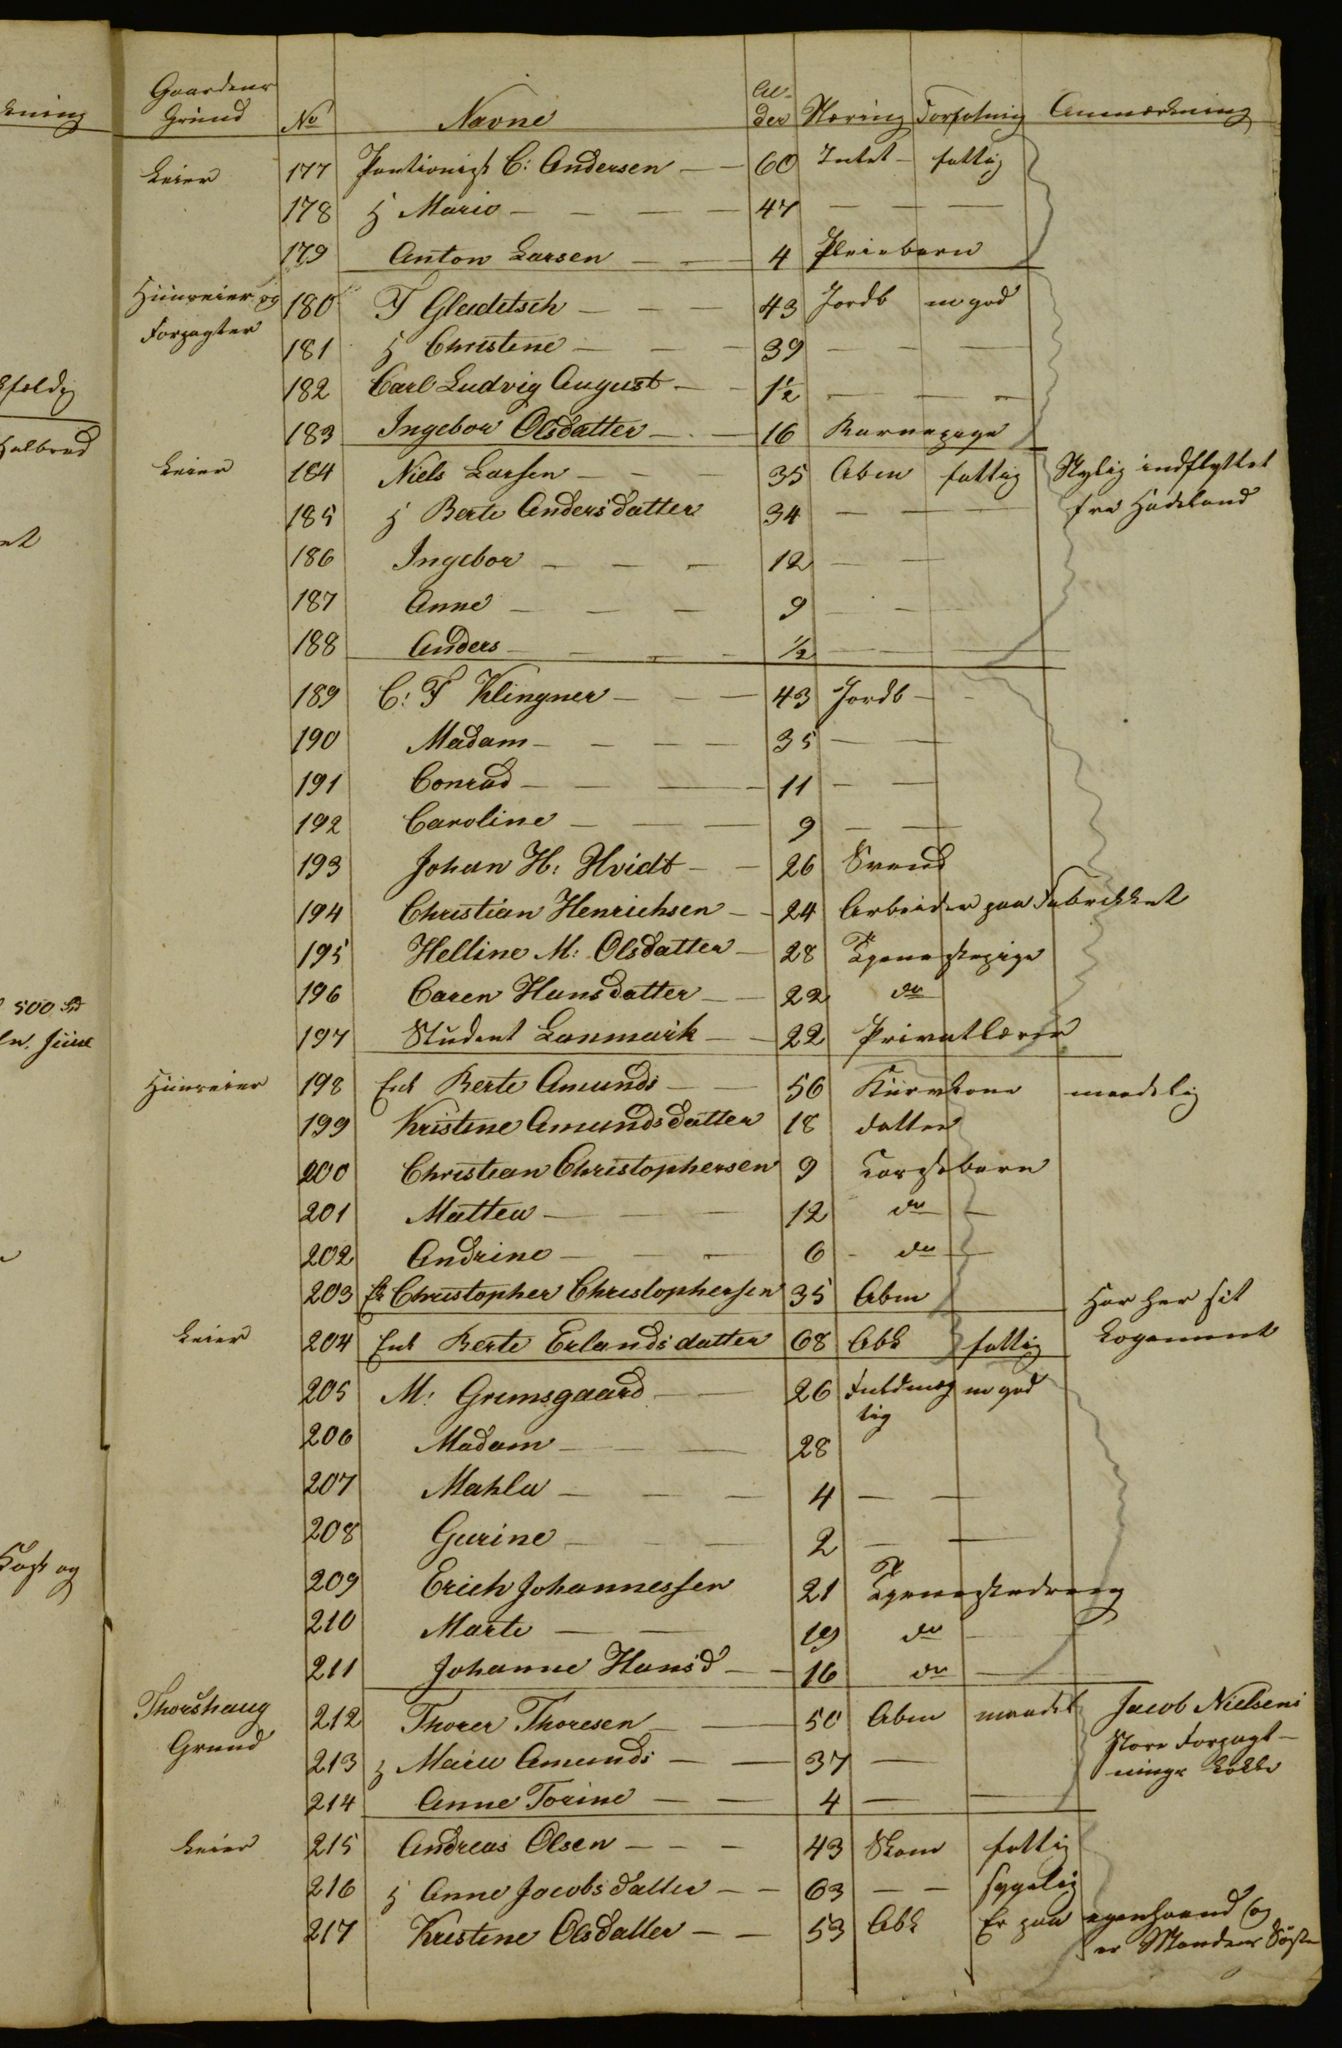 Gaardens Grund | No | Navne | Alder | Næring | Forfatnig | Anmærkning
Leier | 177 | Pentionist C: Andersen | 60 | Intet | fattig
178 | H Marie | 47
179 | Anton Larsen | 4 | Pleiebarn
Huuseier og Forpagter | 180 | F Gleditsch | 43 | Jordb | m god
181 | H Christene | 39
182 | Carl Ludvig August | 1½
183 | Ingebor Olsdatter | 16 | Barnepige
Leier | 184 | Niels Larsen | 35 | Abm | fattig | Nylig indflyttet
185 | H Berte Andersdatter | 34 | fra Hadeland
186 | Ingebor | 12
187 | Anne | 9
188 | Anders | ½
189 | C: F Klingner | 43 | Jordb
190 | Madam | 35
191 | Conrad | 11
192 | Caroline | 9
193 | Johan H: Hvidt | 26 | Svend
194 | Christian Henrichsen | 24 | Arbeider paa Fabrikket
195 | Helline M: Olsdatter | 28 | Tjenestepige
196 | Caren Hansdatter | 22 | do
197 | Student Lanmark | 22 | Privatlærer
Huuseier | 198 | Enk Berte Amunds | 56 | maadelig
199 | Kristine Amundsdatter | 18 | datter
200 | Christian Christophersen | 9 | Torpebarn
201 | Mattea | 12 | do
202 | Andrine | 6 | do
203 | Christopher Christophersen | 35 | Abm | Har her sit
Leier | 204 | Enk Berte Erlandsdatter | 68 | Abk | fattig | Logement
205 | M: Gremsgaard | 26 | Fuldmæg | m god
tig
206 | Madam | 28
207 | Mahla | 4
208 | Gurine | 2
209 | Erich Johannessen | 21 | Tjenestedreng
210 | Marte | 19 | do
211 | Johanne Hansd | 16 | do
Thorshaug Grund | 212 | Thorer Thoresen | 50 | Abm | maadel | Jacob Nielsens
213 | H Maria Amunds | 37 | Store Forpagt-
214 | Anne Torine | 4 | nings Løkke
Leier | 215 | Andreas Olsen | 43 | Skom | fattig
216 | H Anne Jacobsdatter | 63 | sygelig
217 | Kristine Olsdatter | 53 | Abk | Er paa egenhaand og
er Mandens Søster
kning
sfældig
Halbrod
et
500
Kost og